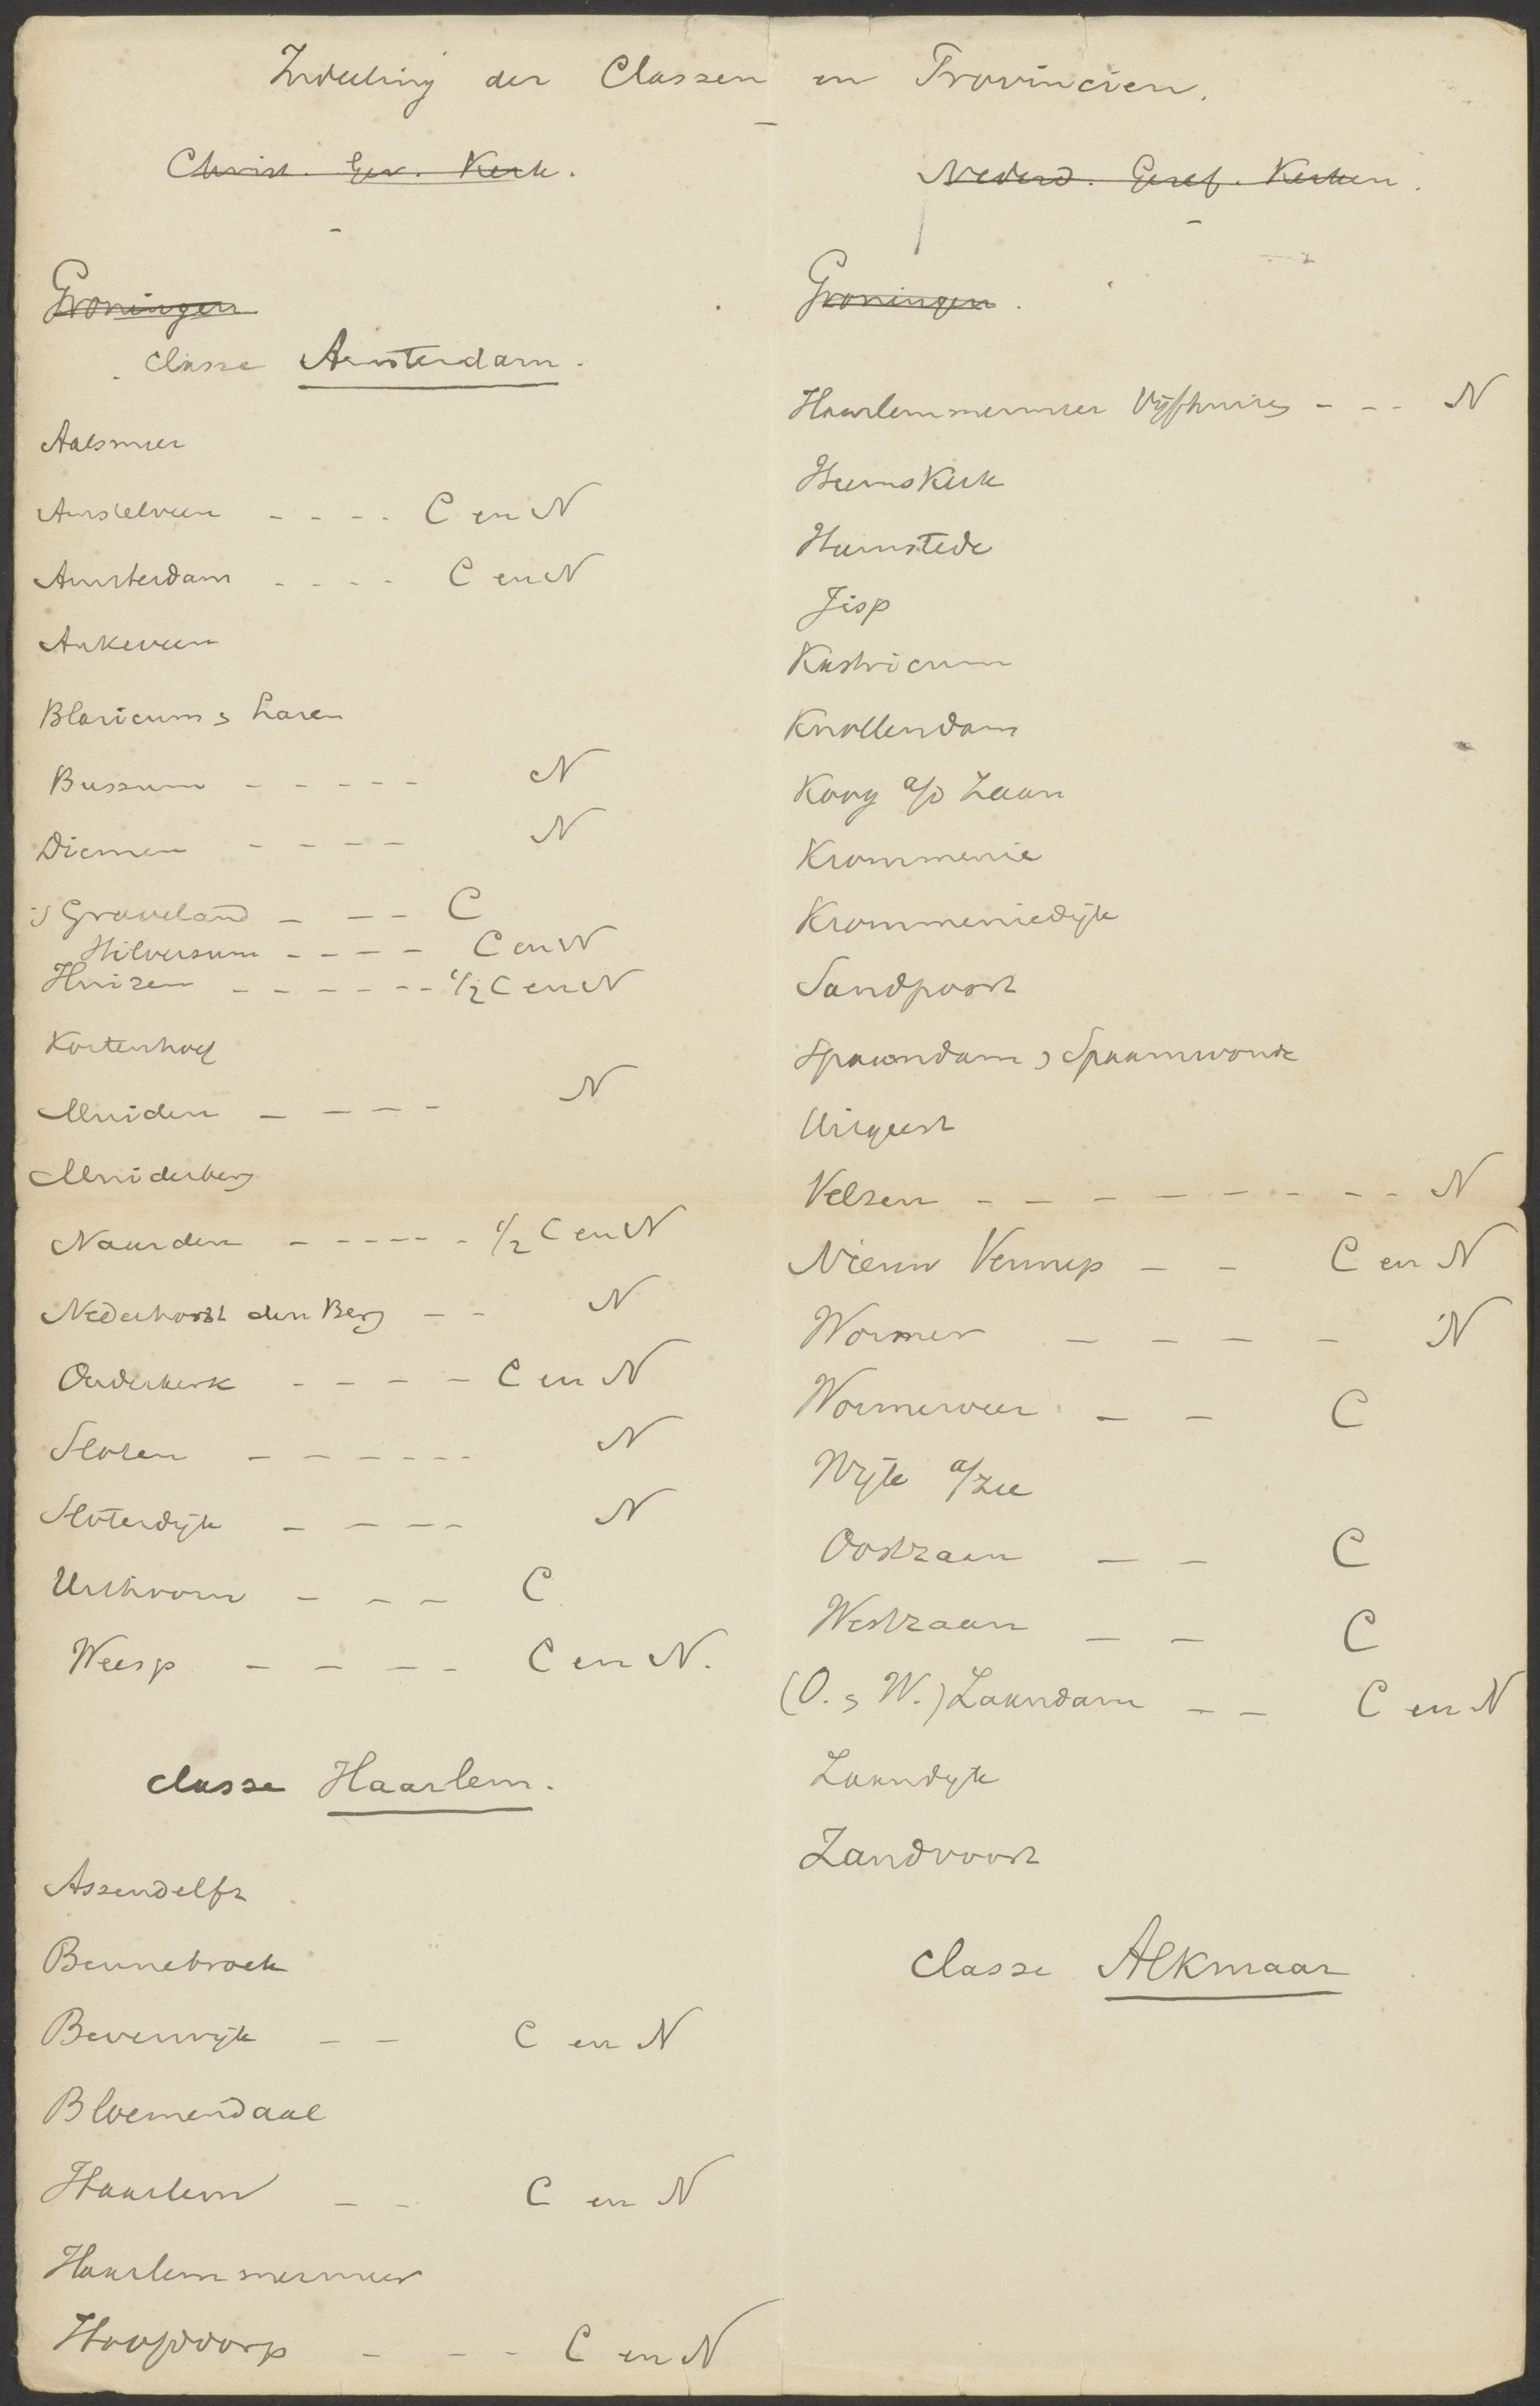 Indeeling der Classen en Provincien.
Christ. Ger. Kerk.
Groningen
classe Amsterdam.
Aalsmeer
Amstelveen - - - - C en N
Amsterdam - - - - C en N
Ankeveen
Blaricum & Laren
Bussum - - - - - N
Diemen - - - - N
's Graveland - - - C
Hilversum - - - - C en N
Huizen - - - - - - 1/2 C en N
Kortenhoef
Muiden - - - - N
Muiderberg
Naarden - - - - - 1/2 C en N
Nederhorst den Berg - - N
Ouderkerk - - - - C en N
Sloten - - - - - - N
Sloterdijk - - - - N
Uithoorn - - - C
Weesp - - - - C en N.
classe Haarlem.
Assendelft
Bennebroek
Beverwijk - - C en N
Bloemendaal
Haarlem - - C en N
Haarlemmermeer
Hoofddorp - - - C en N
Nederd. Geref. Kerken.
Groningen.
Haarlemmermeer Vijfhuizen - - - N
Heemskerk
Heemstede
Jisp
Kastricum
Knollendam
Koog a/d Zaan
Krommenie
Krommeniedijk
Sandpoort
Spaarndam & Spaarnwoude
Uitgeest
Velsen - - - - - - - - N
Nieuw Vennep - - C en N
Wormer - - - - N
Wormerveer - - C
Wijk a/Zee
Oostzaan - - C
Westzaan - - C
(O. & W.) Zaandam - - C en N
Zaandijk
Zandvoort
classe Alkmaar